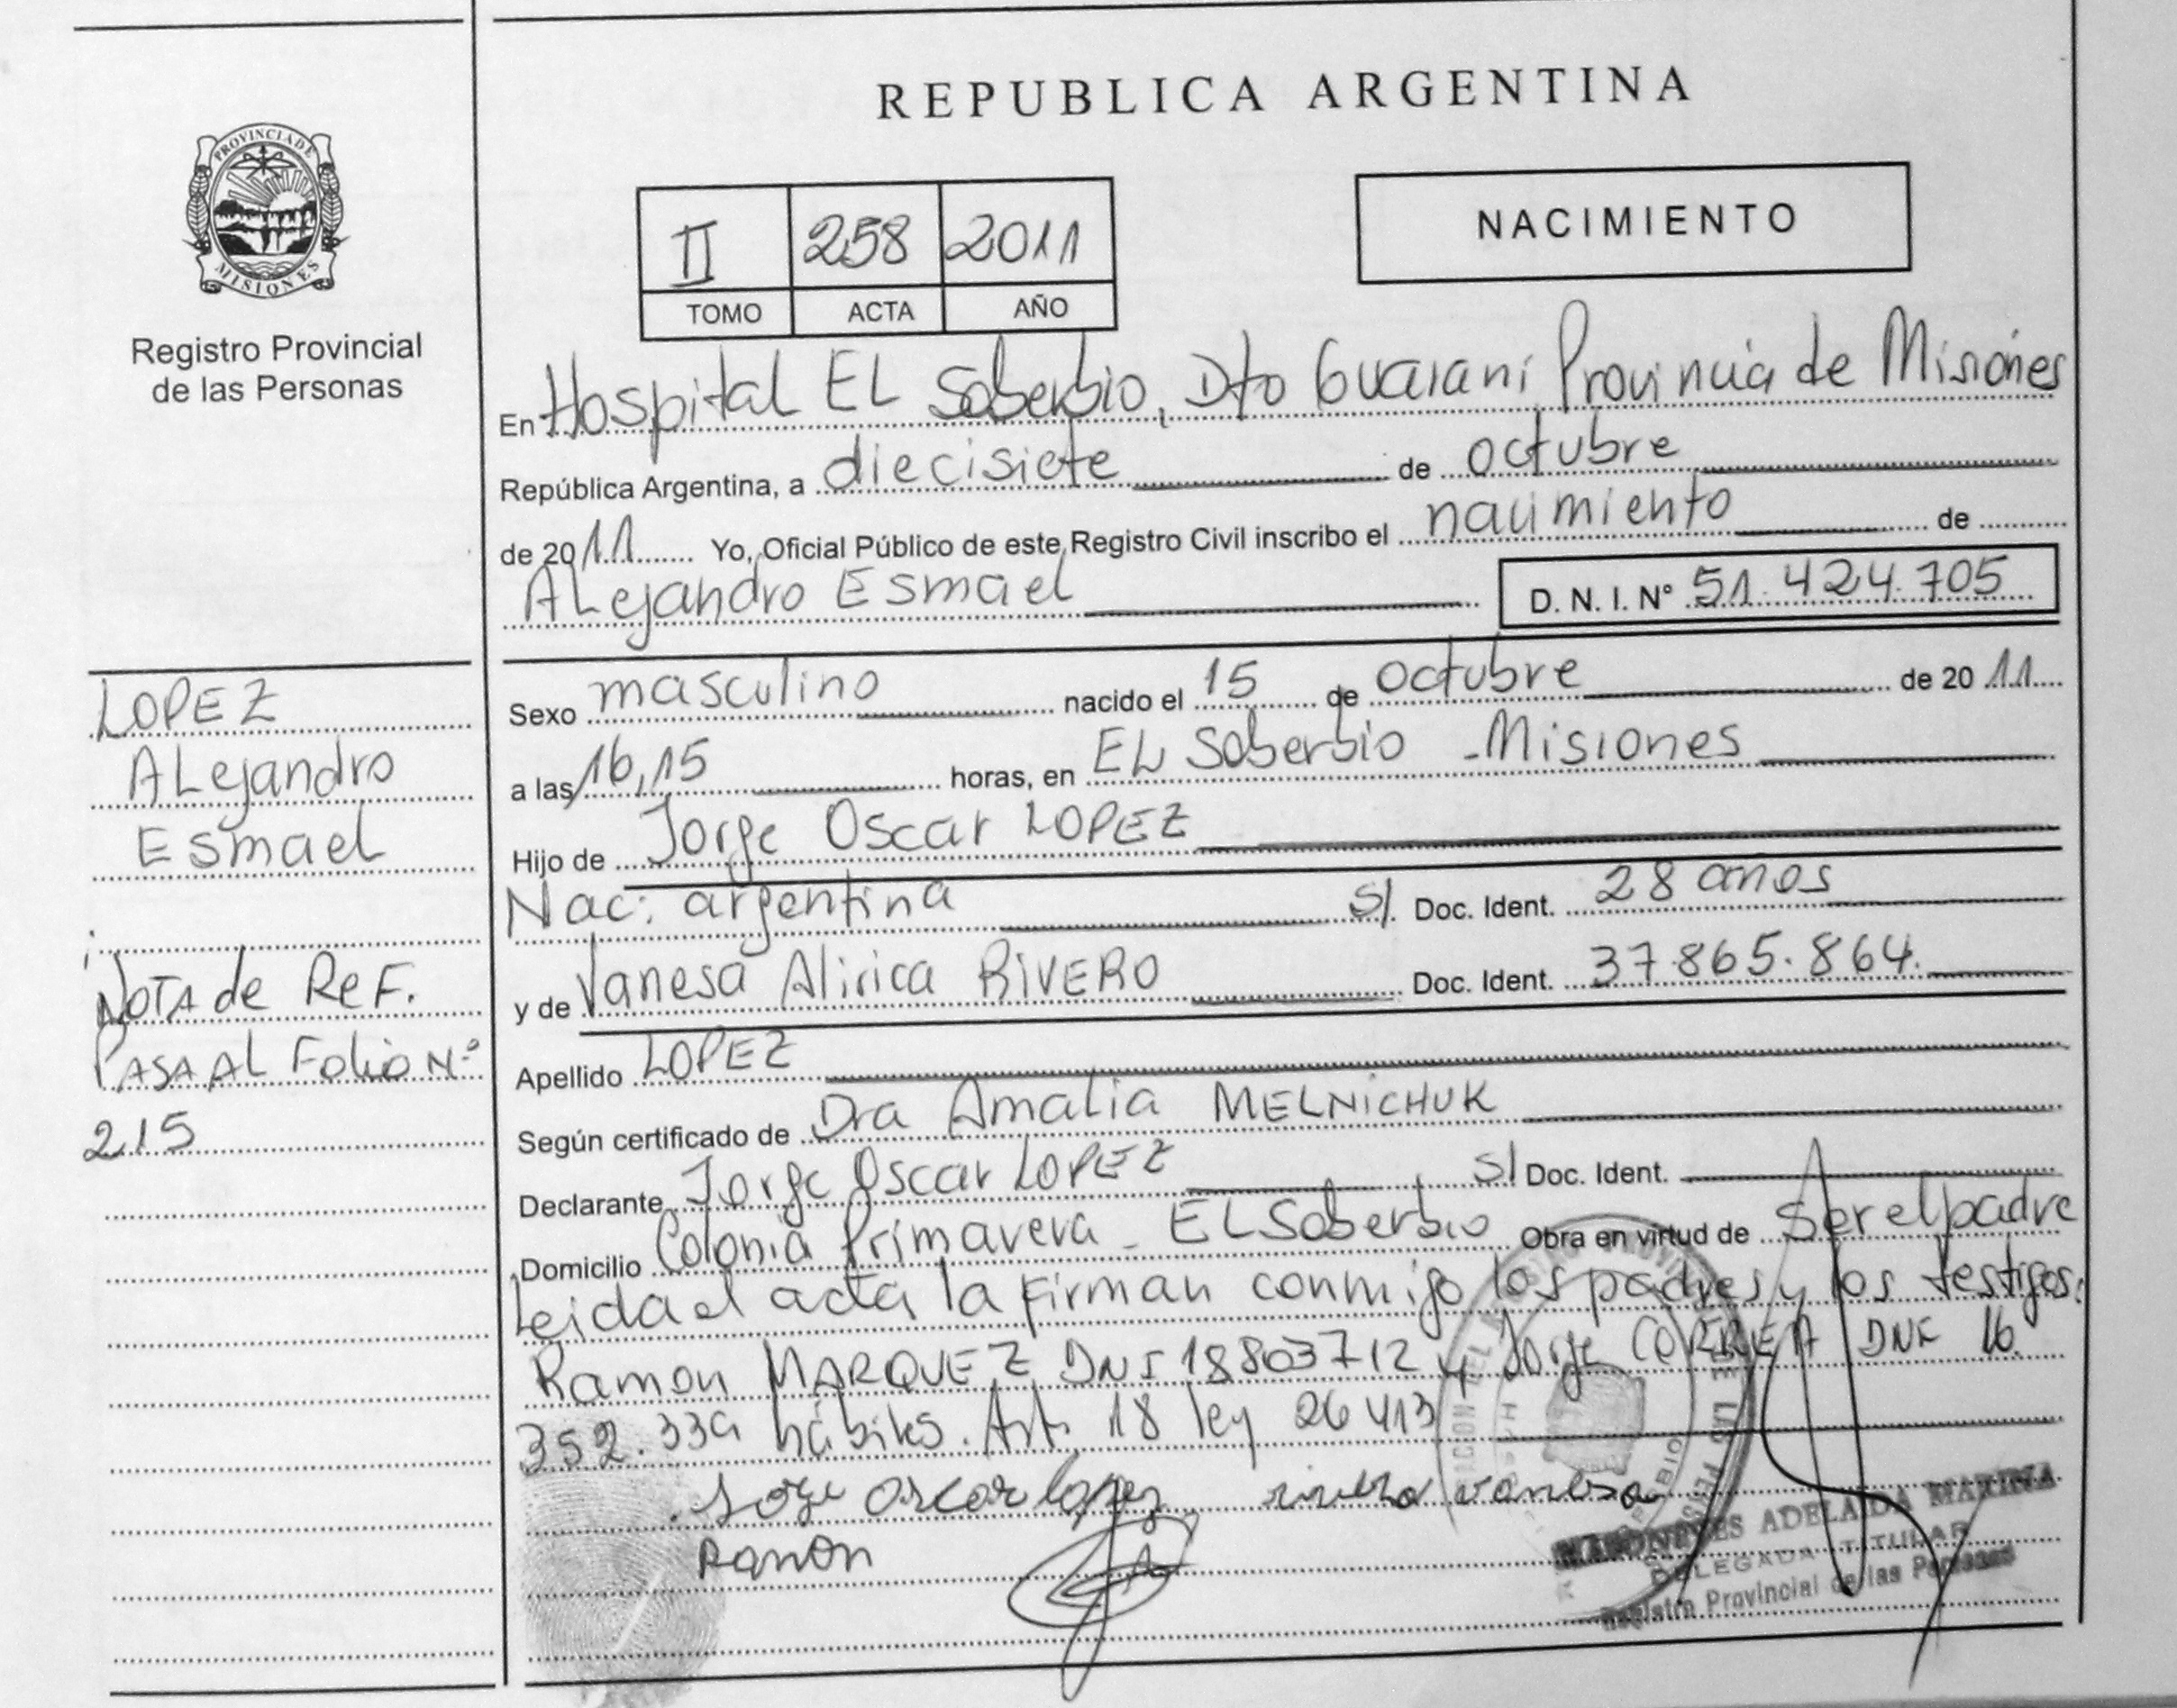 REPUBLICA ARGENTINA
PROVINCIA DE
MISIONES
Registro Provincial
de las Personas
II 258 2011
TOMO ACTA AÑO
NACIMIENTO
En Hospital EL Soberbio, Dto Guaraní Provincia de Misiones
República Argentina, a diecisiete de octubre
de 2011 Yo, Oficial Público de este Registro Civil inscribo el nacimiento de
ALejandro Esmael
D. N. I. N° 51.424.705
LOPEZ
ALejandro
Esmael
NOTA de ReF.
PASA AL Folio Nº
215
Sexo masculino nacido el 15 de octubre de 2011
a las 16,15 horas, en EL Soberbio - Misiones
Hijo de Jorge Oscar LOPEZ
Nac: argentina S/. Doc. Ident. 28 años
y de Vanesa Alirica RIVERO Doc. Ident. 37.865.864.
Apellido LOPEZ
Según certificado de Dra Amalia MELNICHUK
Declarante Jorge Oscar LOPEZ S/ Doc. Ident.
Domicilio Colonia Primavera - EL Soberbio Obra en virtud de Ser el padre
Leida el acta la Firman conmigo los padres y los testigos:
Ramon MARQUEZ DNI 18803712 y Jorge CORREA DNI 16.
352.339 hábiles. Art. 18 ley 26413
Jorge Oscar lopez rivero vanesa
Ramon
ADELAIDA MARINA
DELEGADA TITULAR
Registro Provincial de las Personas